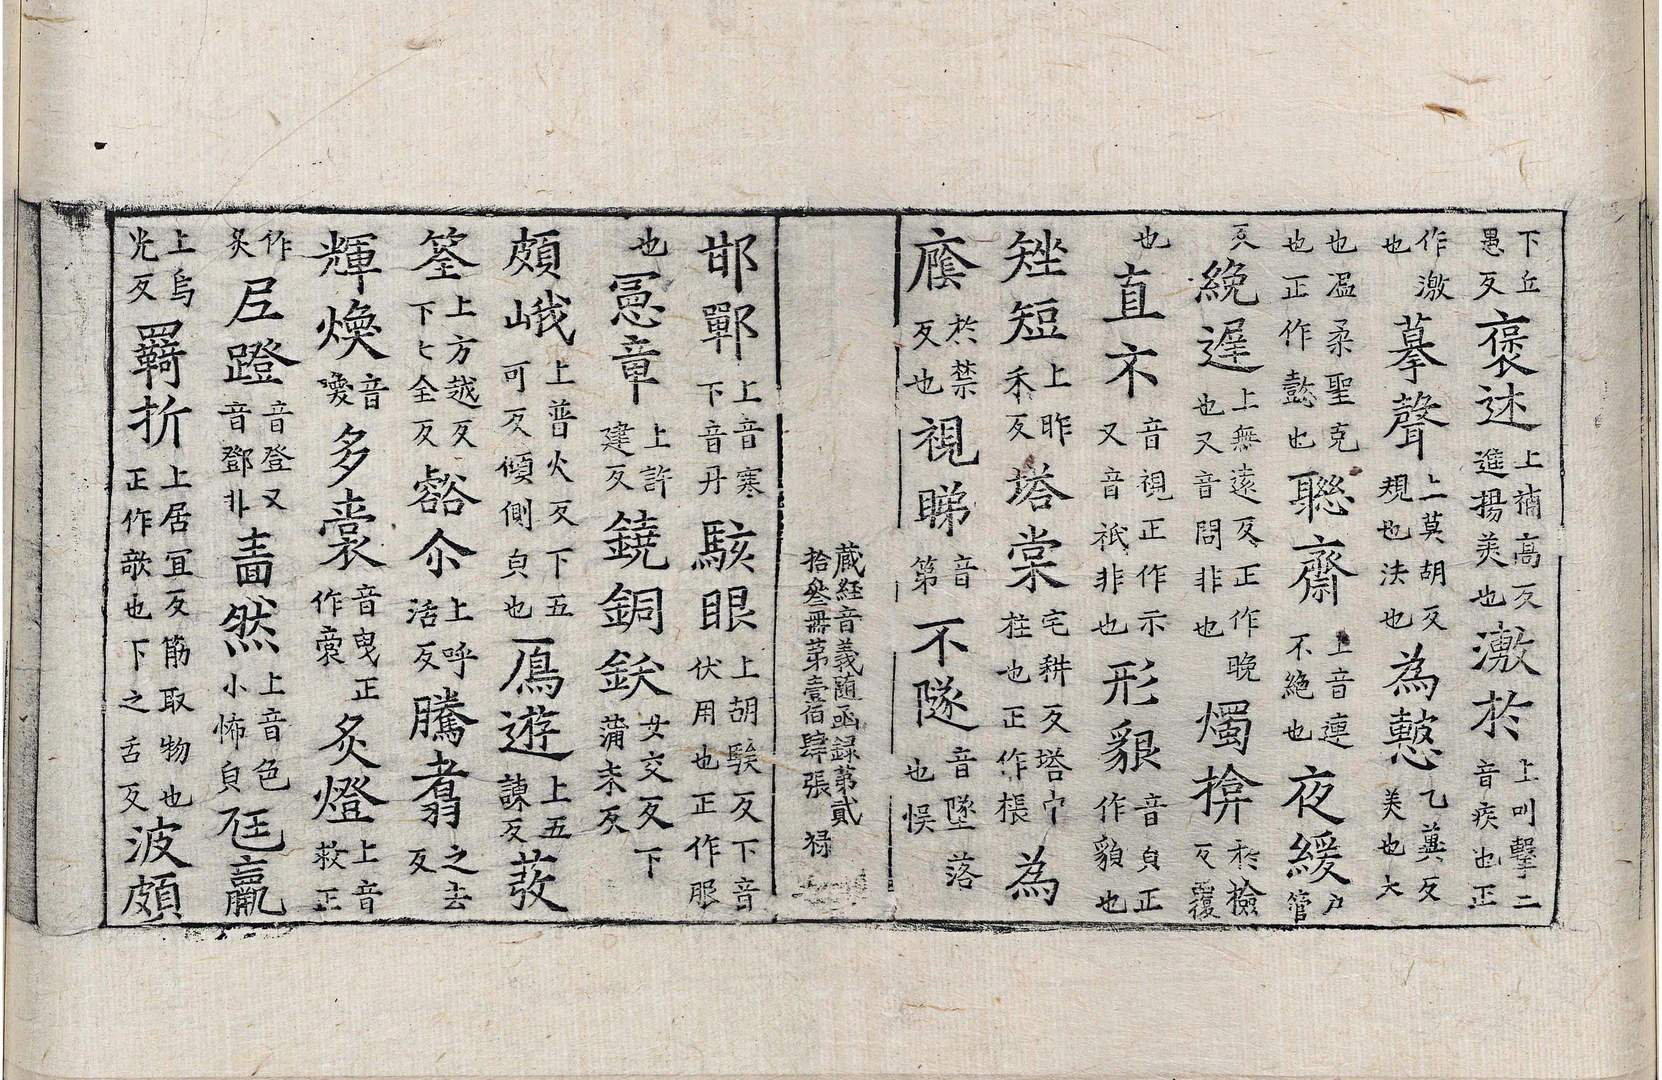 下丘愚反褒述上補高反進揚美也激於上叫擊二音疾也正
作激也摹聲上莫胡反規也法也為懿乙兾反美也大
也温柔聖克也正作懿也聮齋上音連不絕也夜緩户管
反絻遲上無遠反正作晚也又音問非也燭揜於檢反覆
也直不音視正作示又音祇非也形貇音皃正作貌也
矬短上昨禾反塔棠宅耕反塔中柱也正作棖為
癊於禁反也視睇音第不隧音墜落也悞
蔵経音義随函録第貳
拾叄冊第壹佰肆張 禄
邯鄲上音寒下音丹駭眼上胡騃反下音伏用也正作服
也冕章上許建反鐃銅鈸女交反下蒲末反
頗峨上普火反下五可反傾側皃也鴈遊上五諫反蔉
筌上方越反下七全反豁尒上呼活反騰翥之去反
輝煥音奐多囊音曳正作㯻炙燈上音救正
作灸𡰱蹬音登又音鄧非嗇然上音色小怖皃尫羸
上烏光反羇折上居宜反筋取物也正作敧也下之舌反波頗